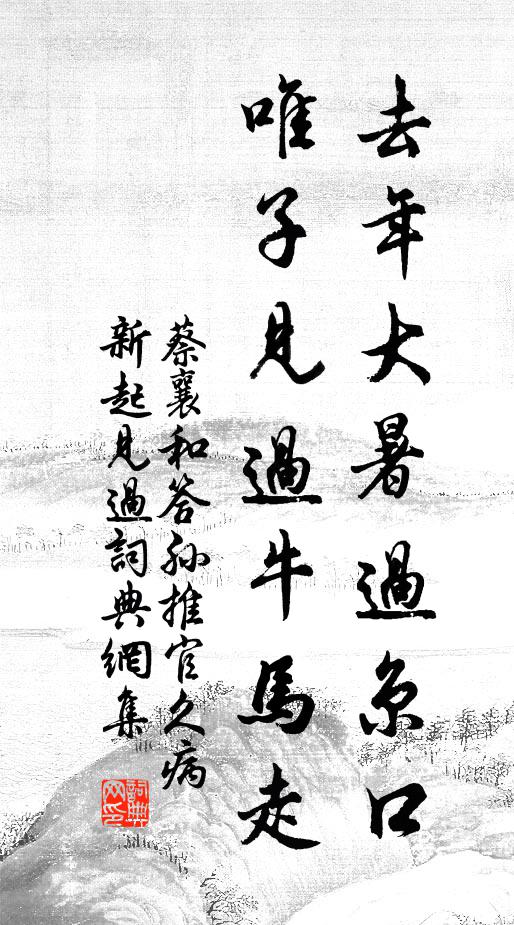 去年大暑過京口
唯子見過牛馬走
蔡襄和答孙推官久病
新起見過詞典網集
詞典網印